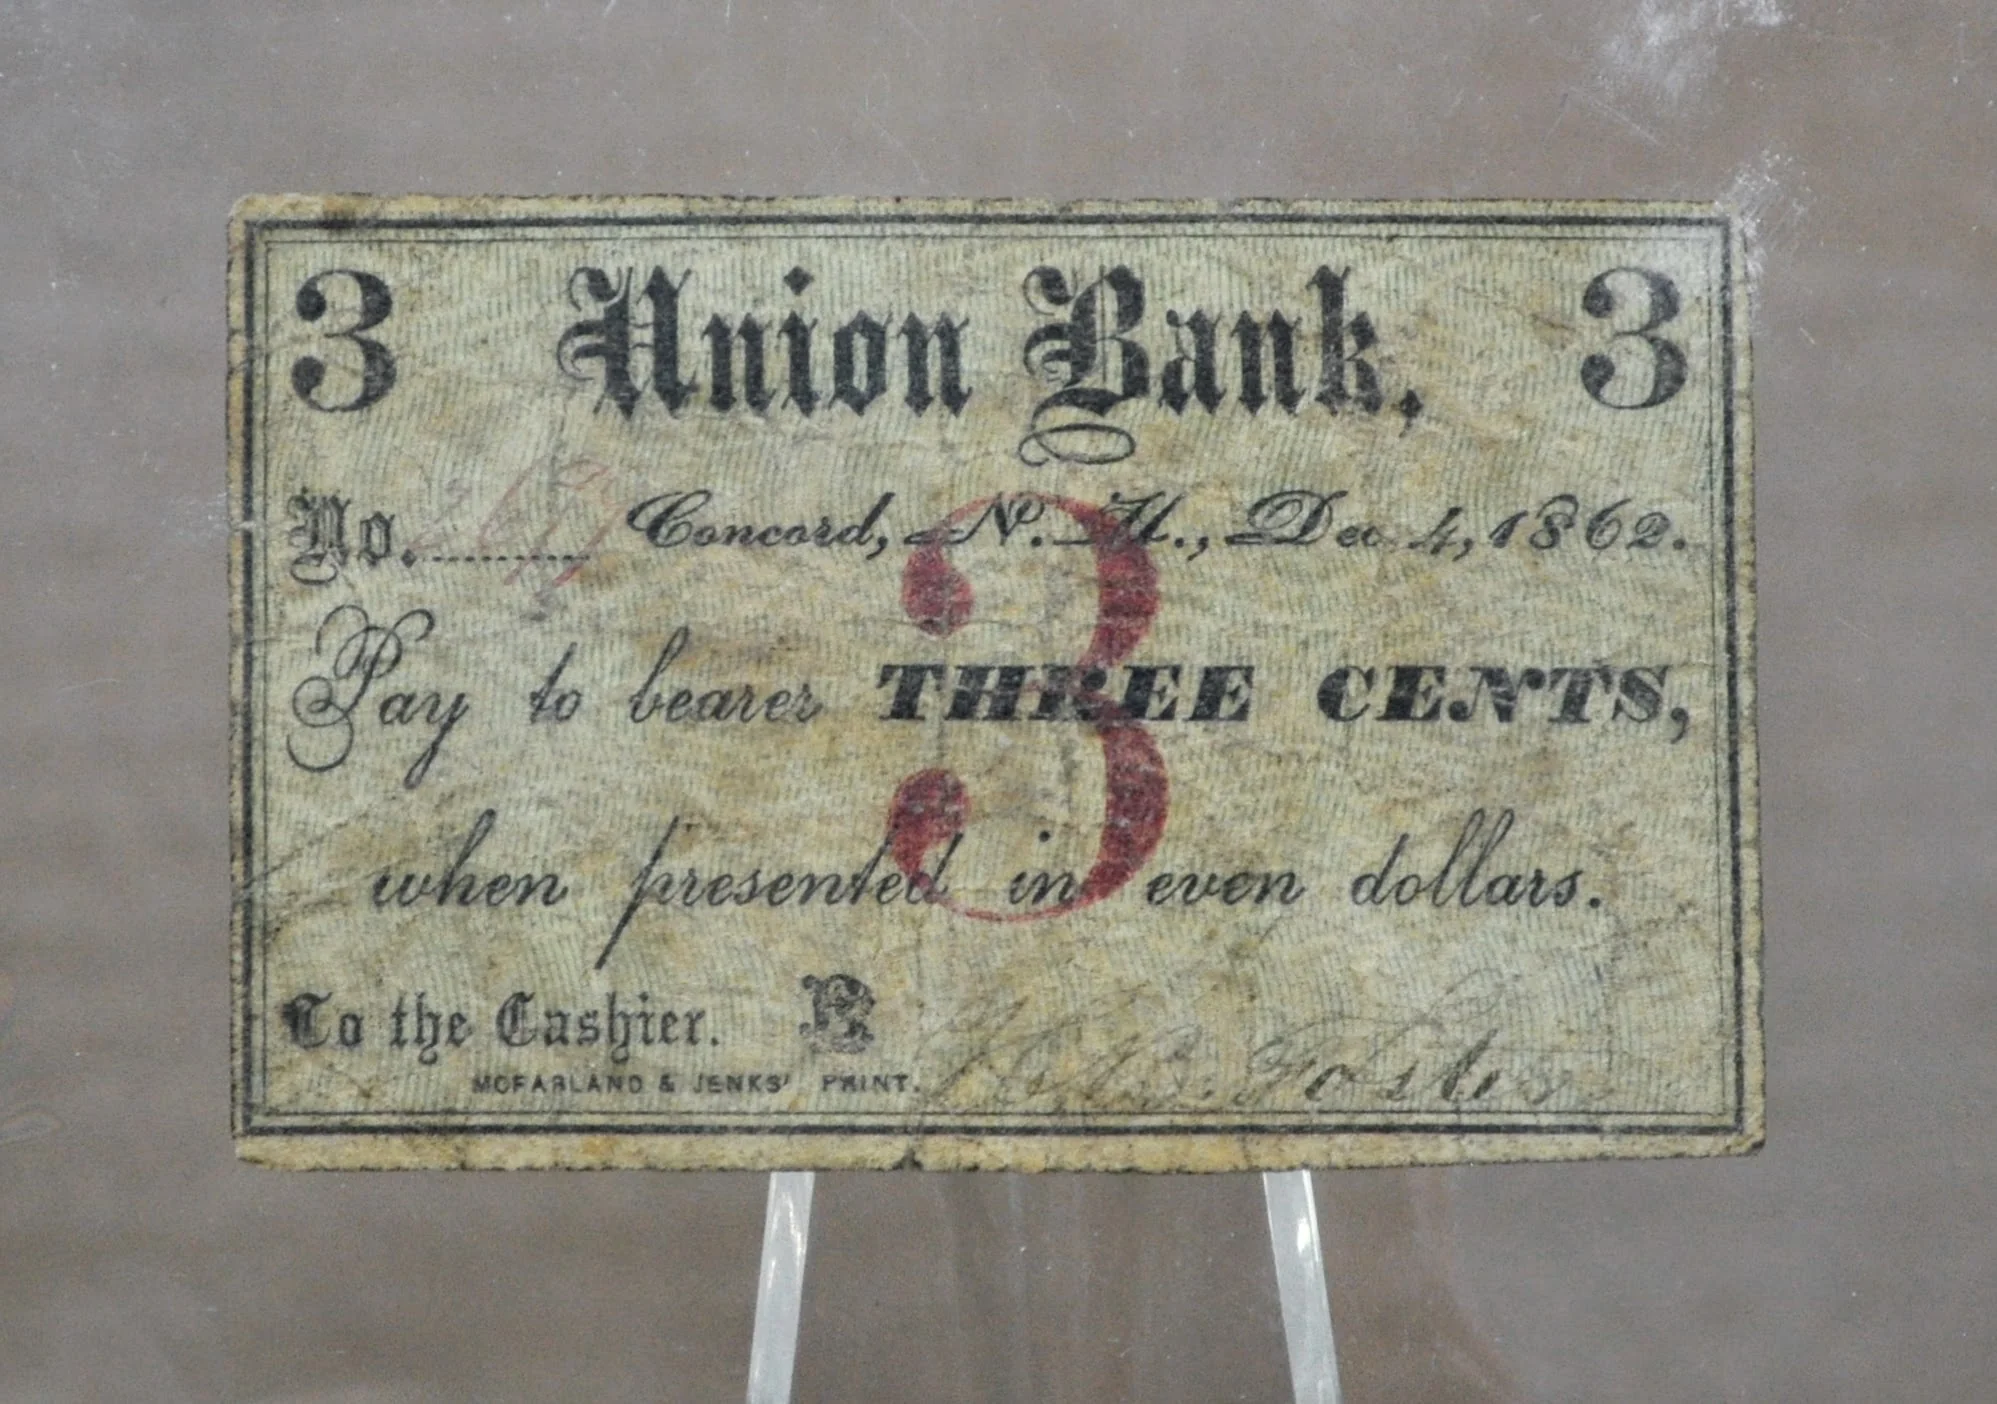 3 Union Bank, 3
No. Concord, N. H., Dec 4, 1862.
3
Pay to bearer THREE CENTS,
when presented in even dollars.
To the Cashier. R
MCFARLAND & JENKS' PRINT. Foster